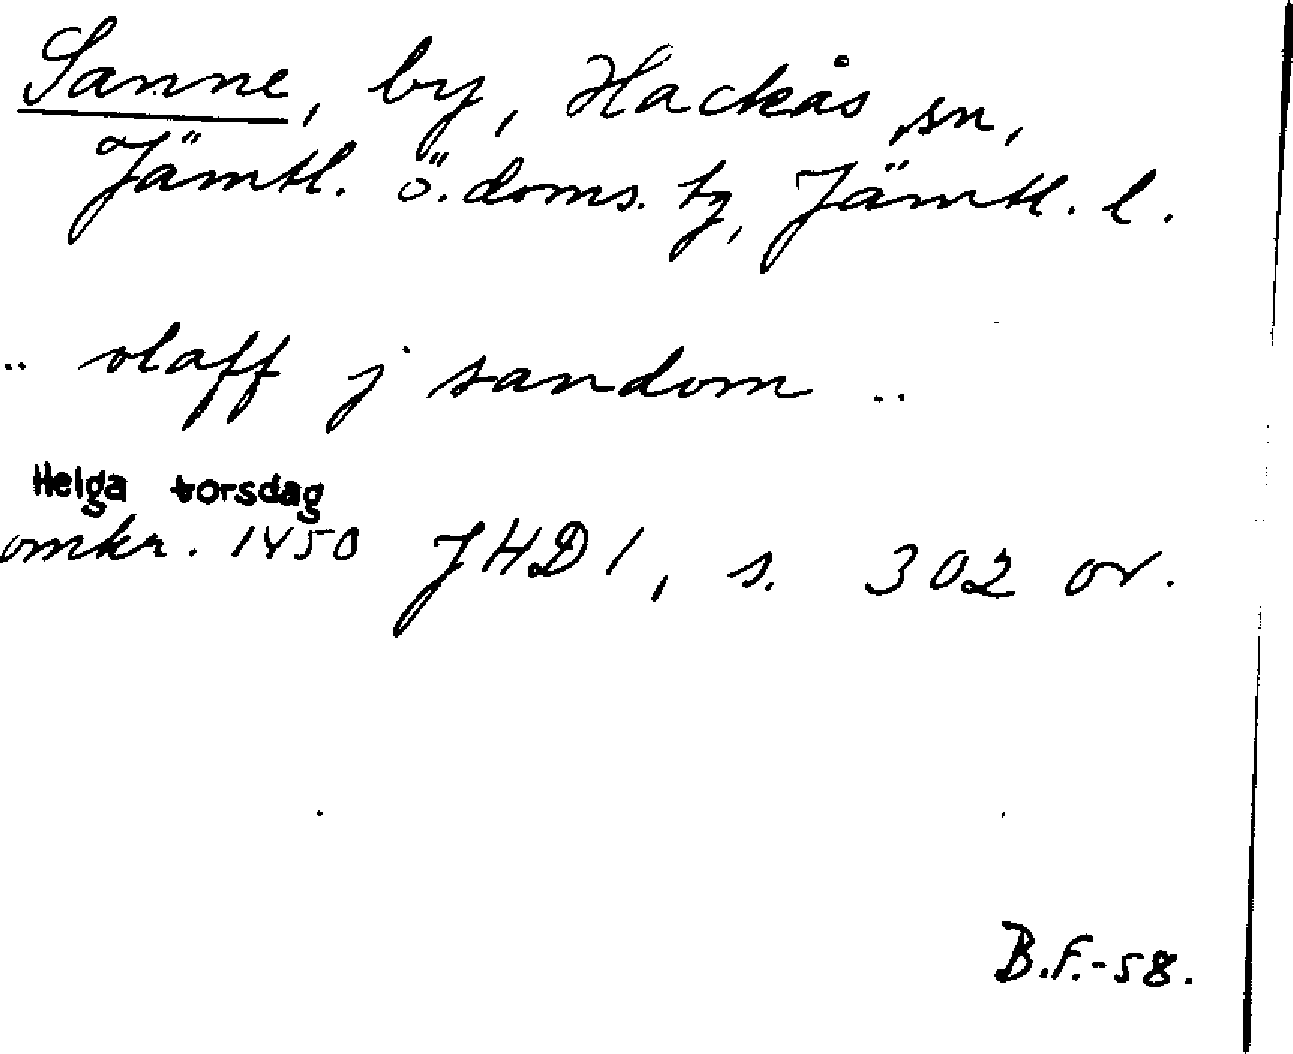 Sanne, by, Hackås sn,
Jämtl. ö. doms. tg, Jämtl. l.
.. olaff j sandom ..
Helga torsdag
omkr. 1450 JHD 1, s. 302 or.
B.F.-58.